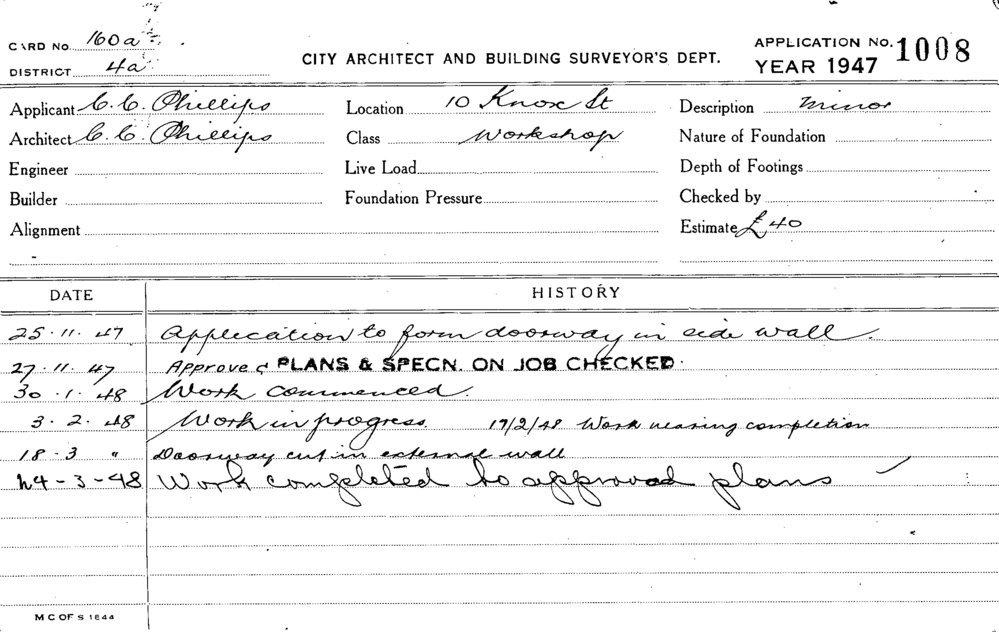 CARD No. 160a
DISTRICT 4a
CITY ARCHITECT AND BUILDING SURVEYOR'S DEPT.
APPLICATION No. 1008
YEAR 1947
Applicant C. C. Phillips Location 10 Knox St Description Minor
Architect C. C. Phillips Class Workshop Nature of Foundation
Engineer Live Load Depth of Footings
Builder Foundation Pressure Checked by
Alignment Estimate £40
DATE HISTORY
25.11.47 Application to form doorway in side wall.
27.11.47 Approved PLANS & SPECN. ON JOB CHECKED.
30.1.48 Work commenced.
3.2.48 Work in progress. 17/2/48 Work nearing completion
18-3 " Doorway cut in external wall
24-3-48 Work completed to approved plans
M C OF S 1844